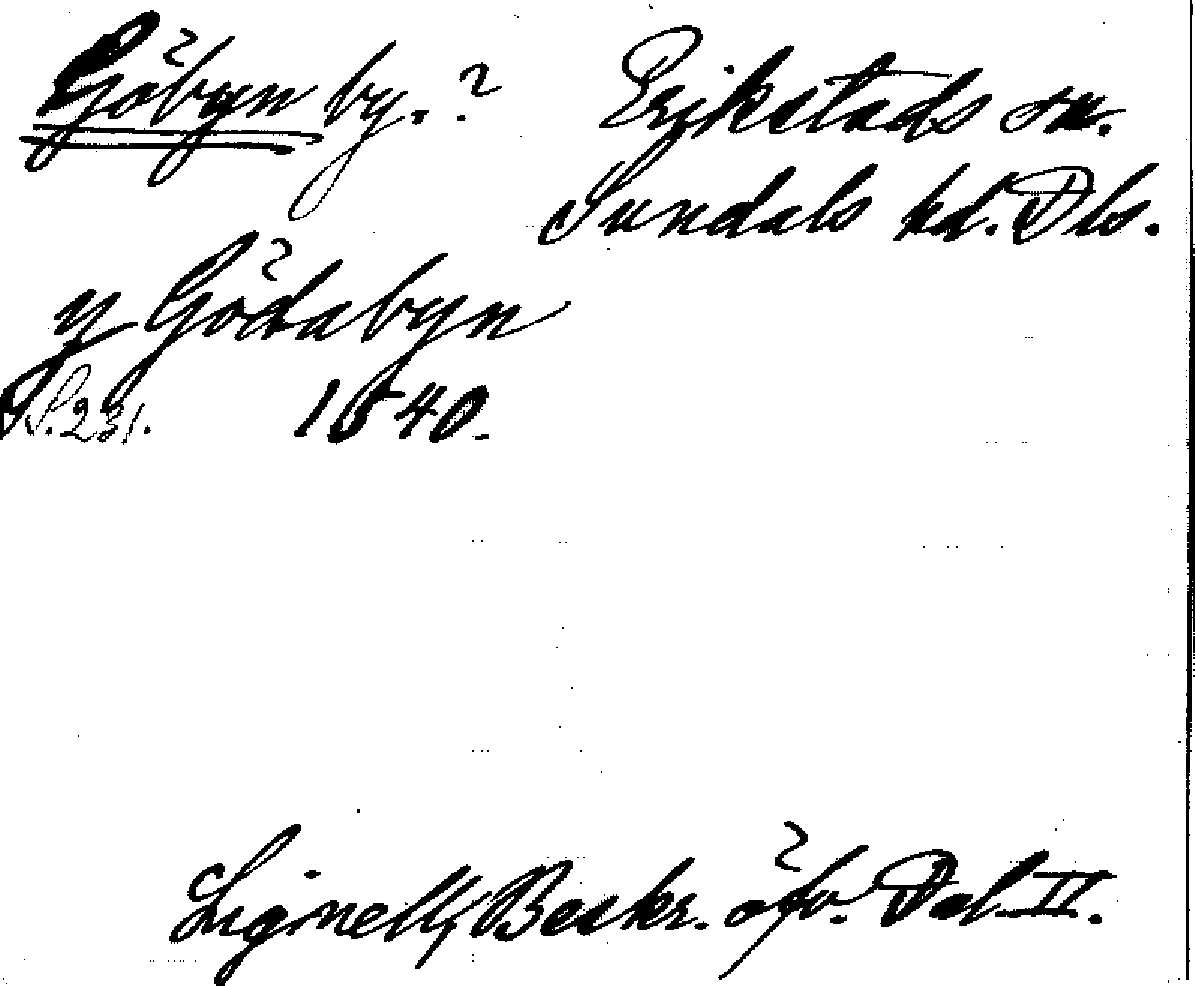 Göbyn by.? Erikstads sn.
Sundals hd. Dls.
y Gödabyn
S. 231. 1540.
Lignell, Beskr. öfv. Dal. II.